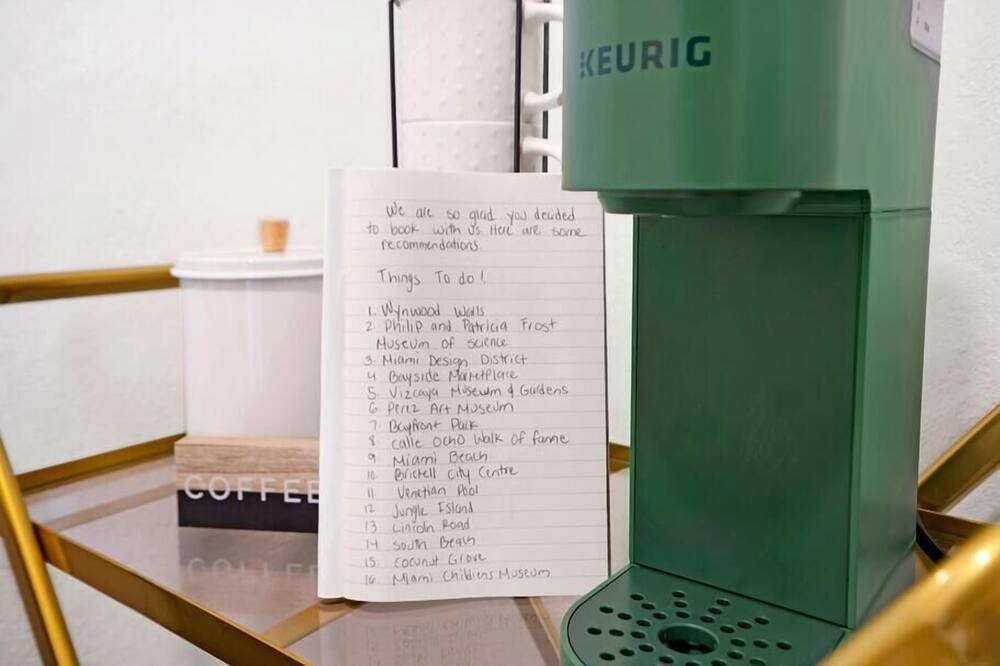 KEURIG
We are so glad you decided
to book with us. Here are some
recommendations.
Things To do!
1. Wynwood Walls
2. Philip and Patricia Frost
Museum of Science
3. Miami Design District
4. Bayside Marketplace
5. Vizcaya Museum & Gardens
6. Perez Art Museum
7. Bayfront Park
8. Calle Ocho Walk of fame
9. Miami Beach
10. Brickell City Centre
11. Venetian Pool
12. Jungle Island
13. Lincoln Road
14. South Beach
15. Coconut Grove
16. Miami Childrens Museum
COFFEE